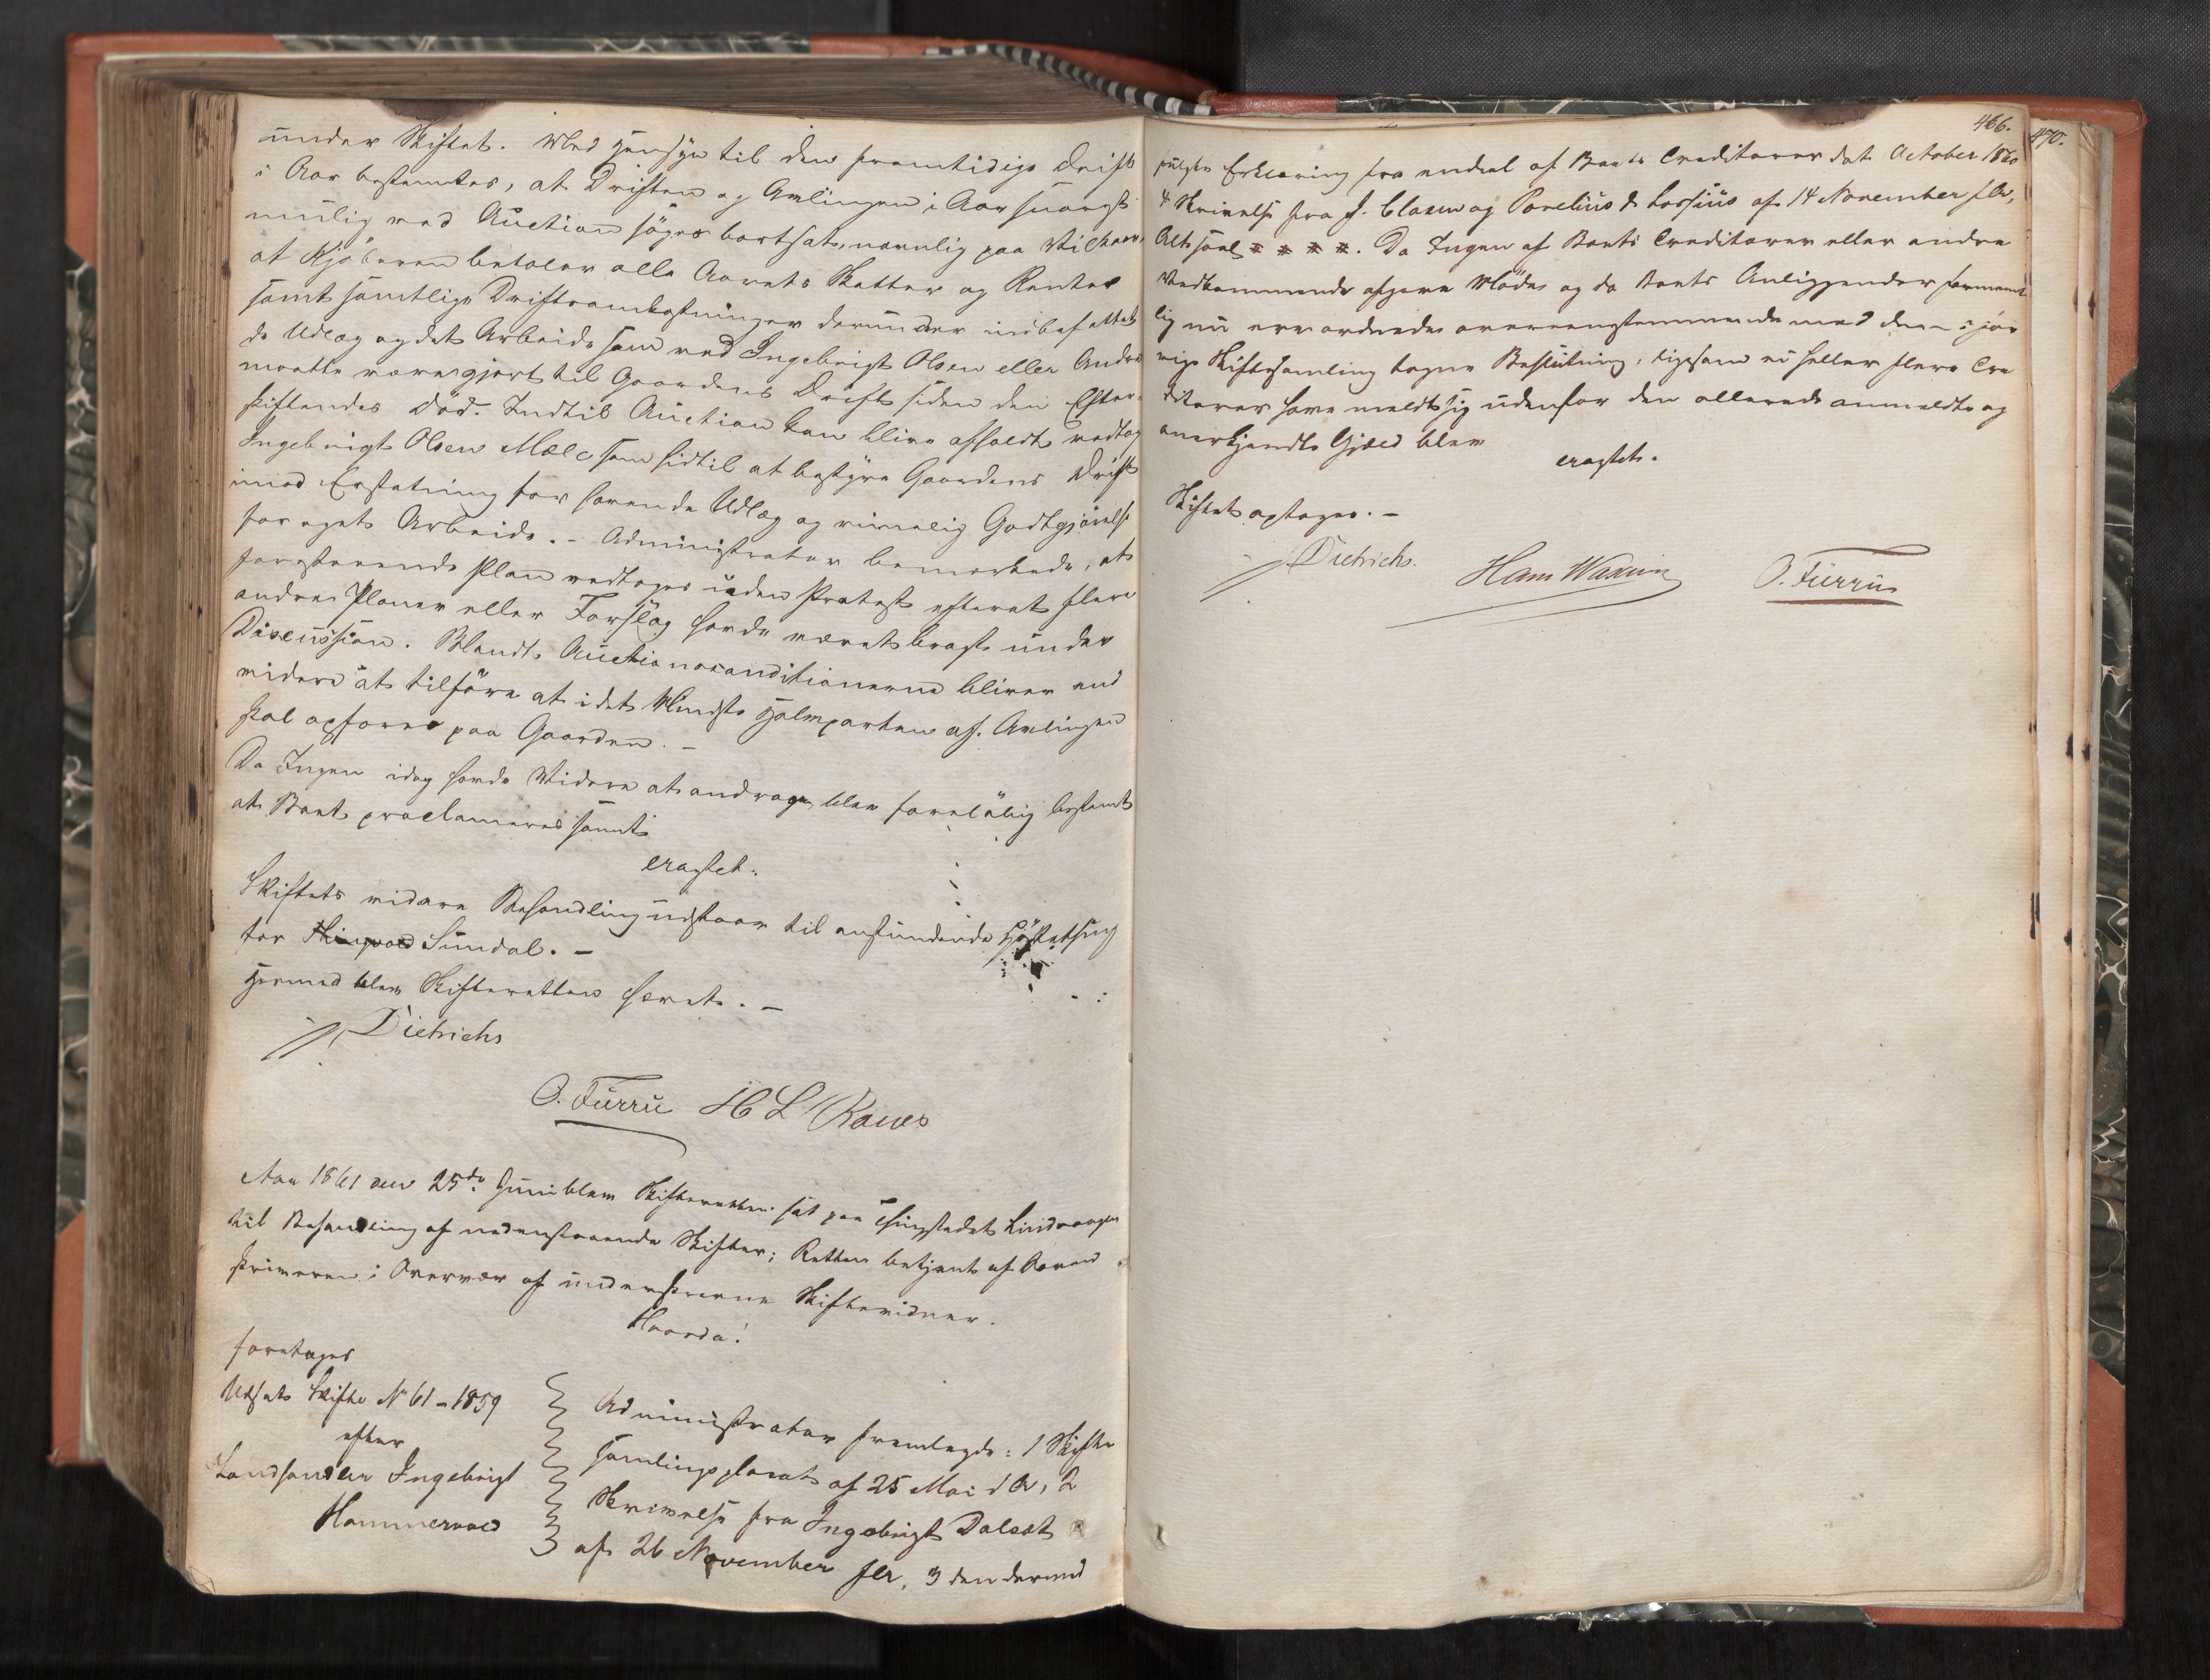 under Skiftet. Med Hensyn til den fremtidige Drift
i Aar bestemtes, at Driften og Avlingen i Aar snarest
mulig ved Auction søges bortsat, navnlig paa Vilkaar,
at Kjøberen betaler alle Aarets Skatter og Renter
samt samtlige Driftsomkostninger derunder indbefattet
de Udlæg og det Arbeide som ved Ingebrigt Olsen eller Andre
maatte være gjort til Gaardens Drift siden den Efter-
skiftendes Død. Indtil Auction kan blive afholdt vedtog
Ingebrigt Olsen Mæle som hidtil at bestyre Gaardens Drift
imod Erstatning for havende Udlæg og rimelig Godtgjørelse
for eget Arbeide. - Administrator bemærkede, at
foranstaaende Plan vedtoges uden Protest efterat flere
andre Planer eller Forslag havde været bragt under
Discussion. Blandt Auctionsconditionerne bliver end
videre at tilføre at i det Mindste Halvparten af Avlingen
skal opfores paa Gaarden. -
Da Ingen idag havde Videre at andrage blev foreløbig bestemt
at Boet proclameres samt
eragtet:
Skiftets videre Behandling udstaar til anstundende Høstething
for Sundal. -
Hermed blev Skifteretten hævet. -
Dietrichs
O. Furru H L Raues
Aar 1861 den 25de Juni blev Skifteretten sat paa Thingstedet Lindvaagen
til Behandling af nedenstaaende Skifter; Retten betjent af Sorend
skriveren i Overvær af underskrevne Skiftevidner.
Hvorda!
foretages
Udsat Skifte No 61 - 1859
efter
Landhandler Ingebrigt
Hammervold
Administrator fremlagde: 1 Skifte
samlingsplacat af 25 Mai d A, 2
Skrivelse fra Ingebrigt Dalset
af 26 November f A, 3 den dermed
466.
470.
fulgte Erklæring fra endeel af Boets Creditorer dat October 1860
4 Skrivelse fra J. Clausen og Parelius & Lossius af 14 November f Ar,
Alt saal # # # #. Da Ingen af Boets Creditorer eller andre
Vedkommende afgave Møde og da Boets Anliggender forment
lig nu ere ordnede overeensstemmende med den i for
rige Skiftesamling tagne Beslutning, ligesom ei heller flere Cre
ditorer have meldt sig udenfor den allerede anmeldte og
anerkjendte Gjæld blev
eragtet.
Skiftet optages. -
Dietrichs. Hans Waxvig O. Furru